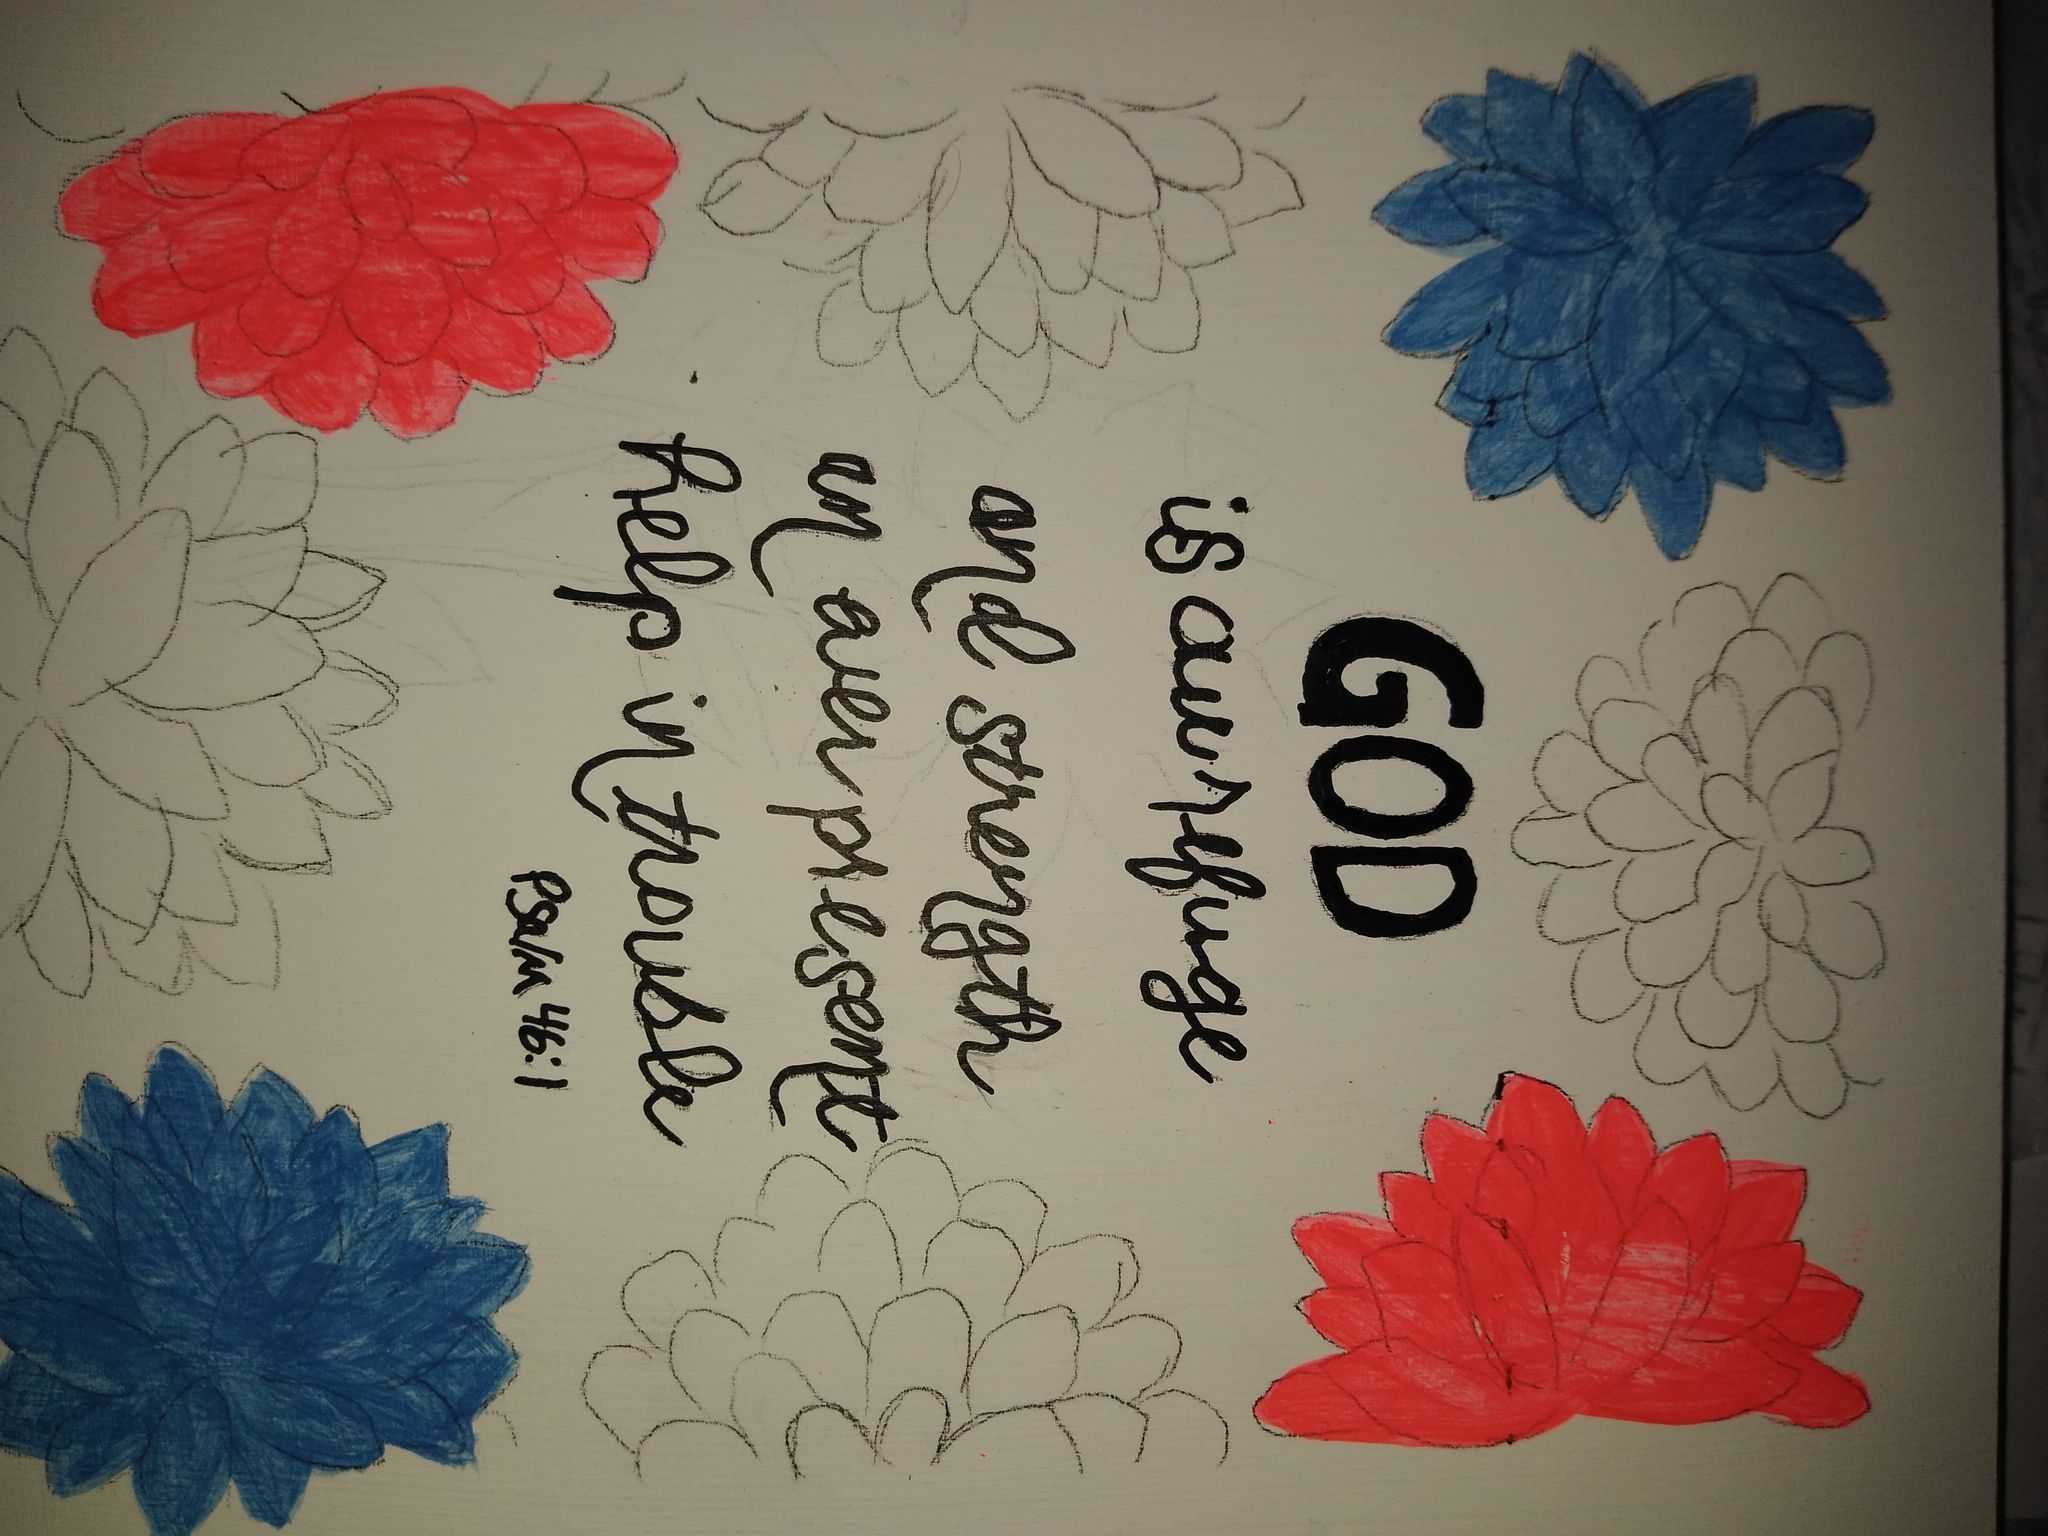 GOD
is our refuge
and strength
an ever present
help in trouble
Psalm 46:1